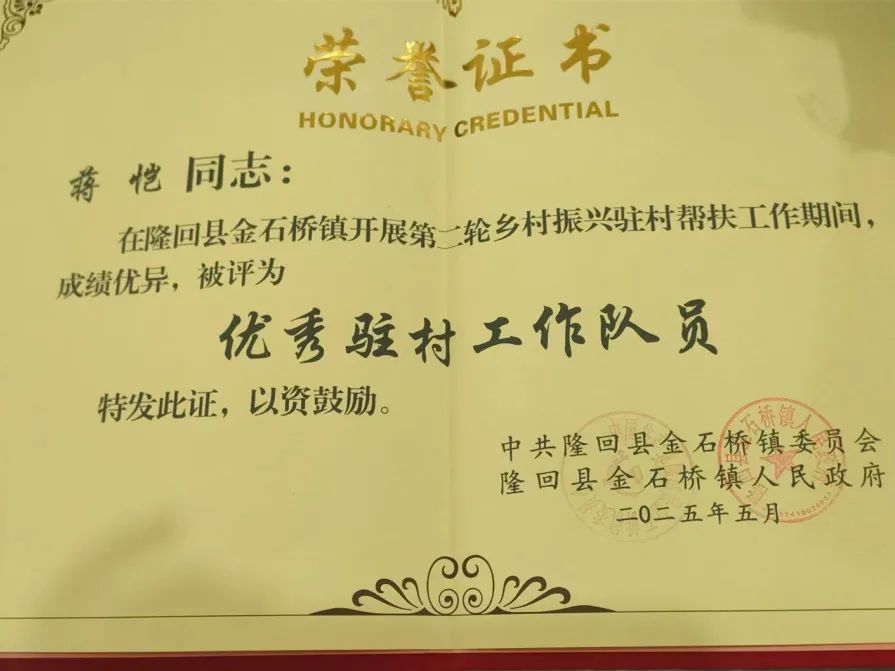 荣誉证书
HONORARY CREDENTIAL
蒋恺 同志：
在隆回县金石桥镇开展第二轮乡村振兴驻村帮扶工作期间，
成绩优异，被评为
优秀驻村工作队员
特发此证，以资鼓励。
中共隆回县金石桥镇委员会
隆回县金石桥镇人民政府
二〇二五年五月